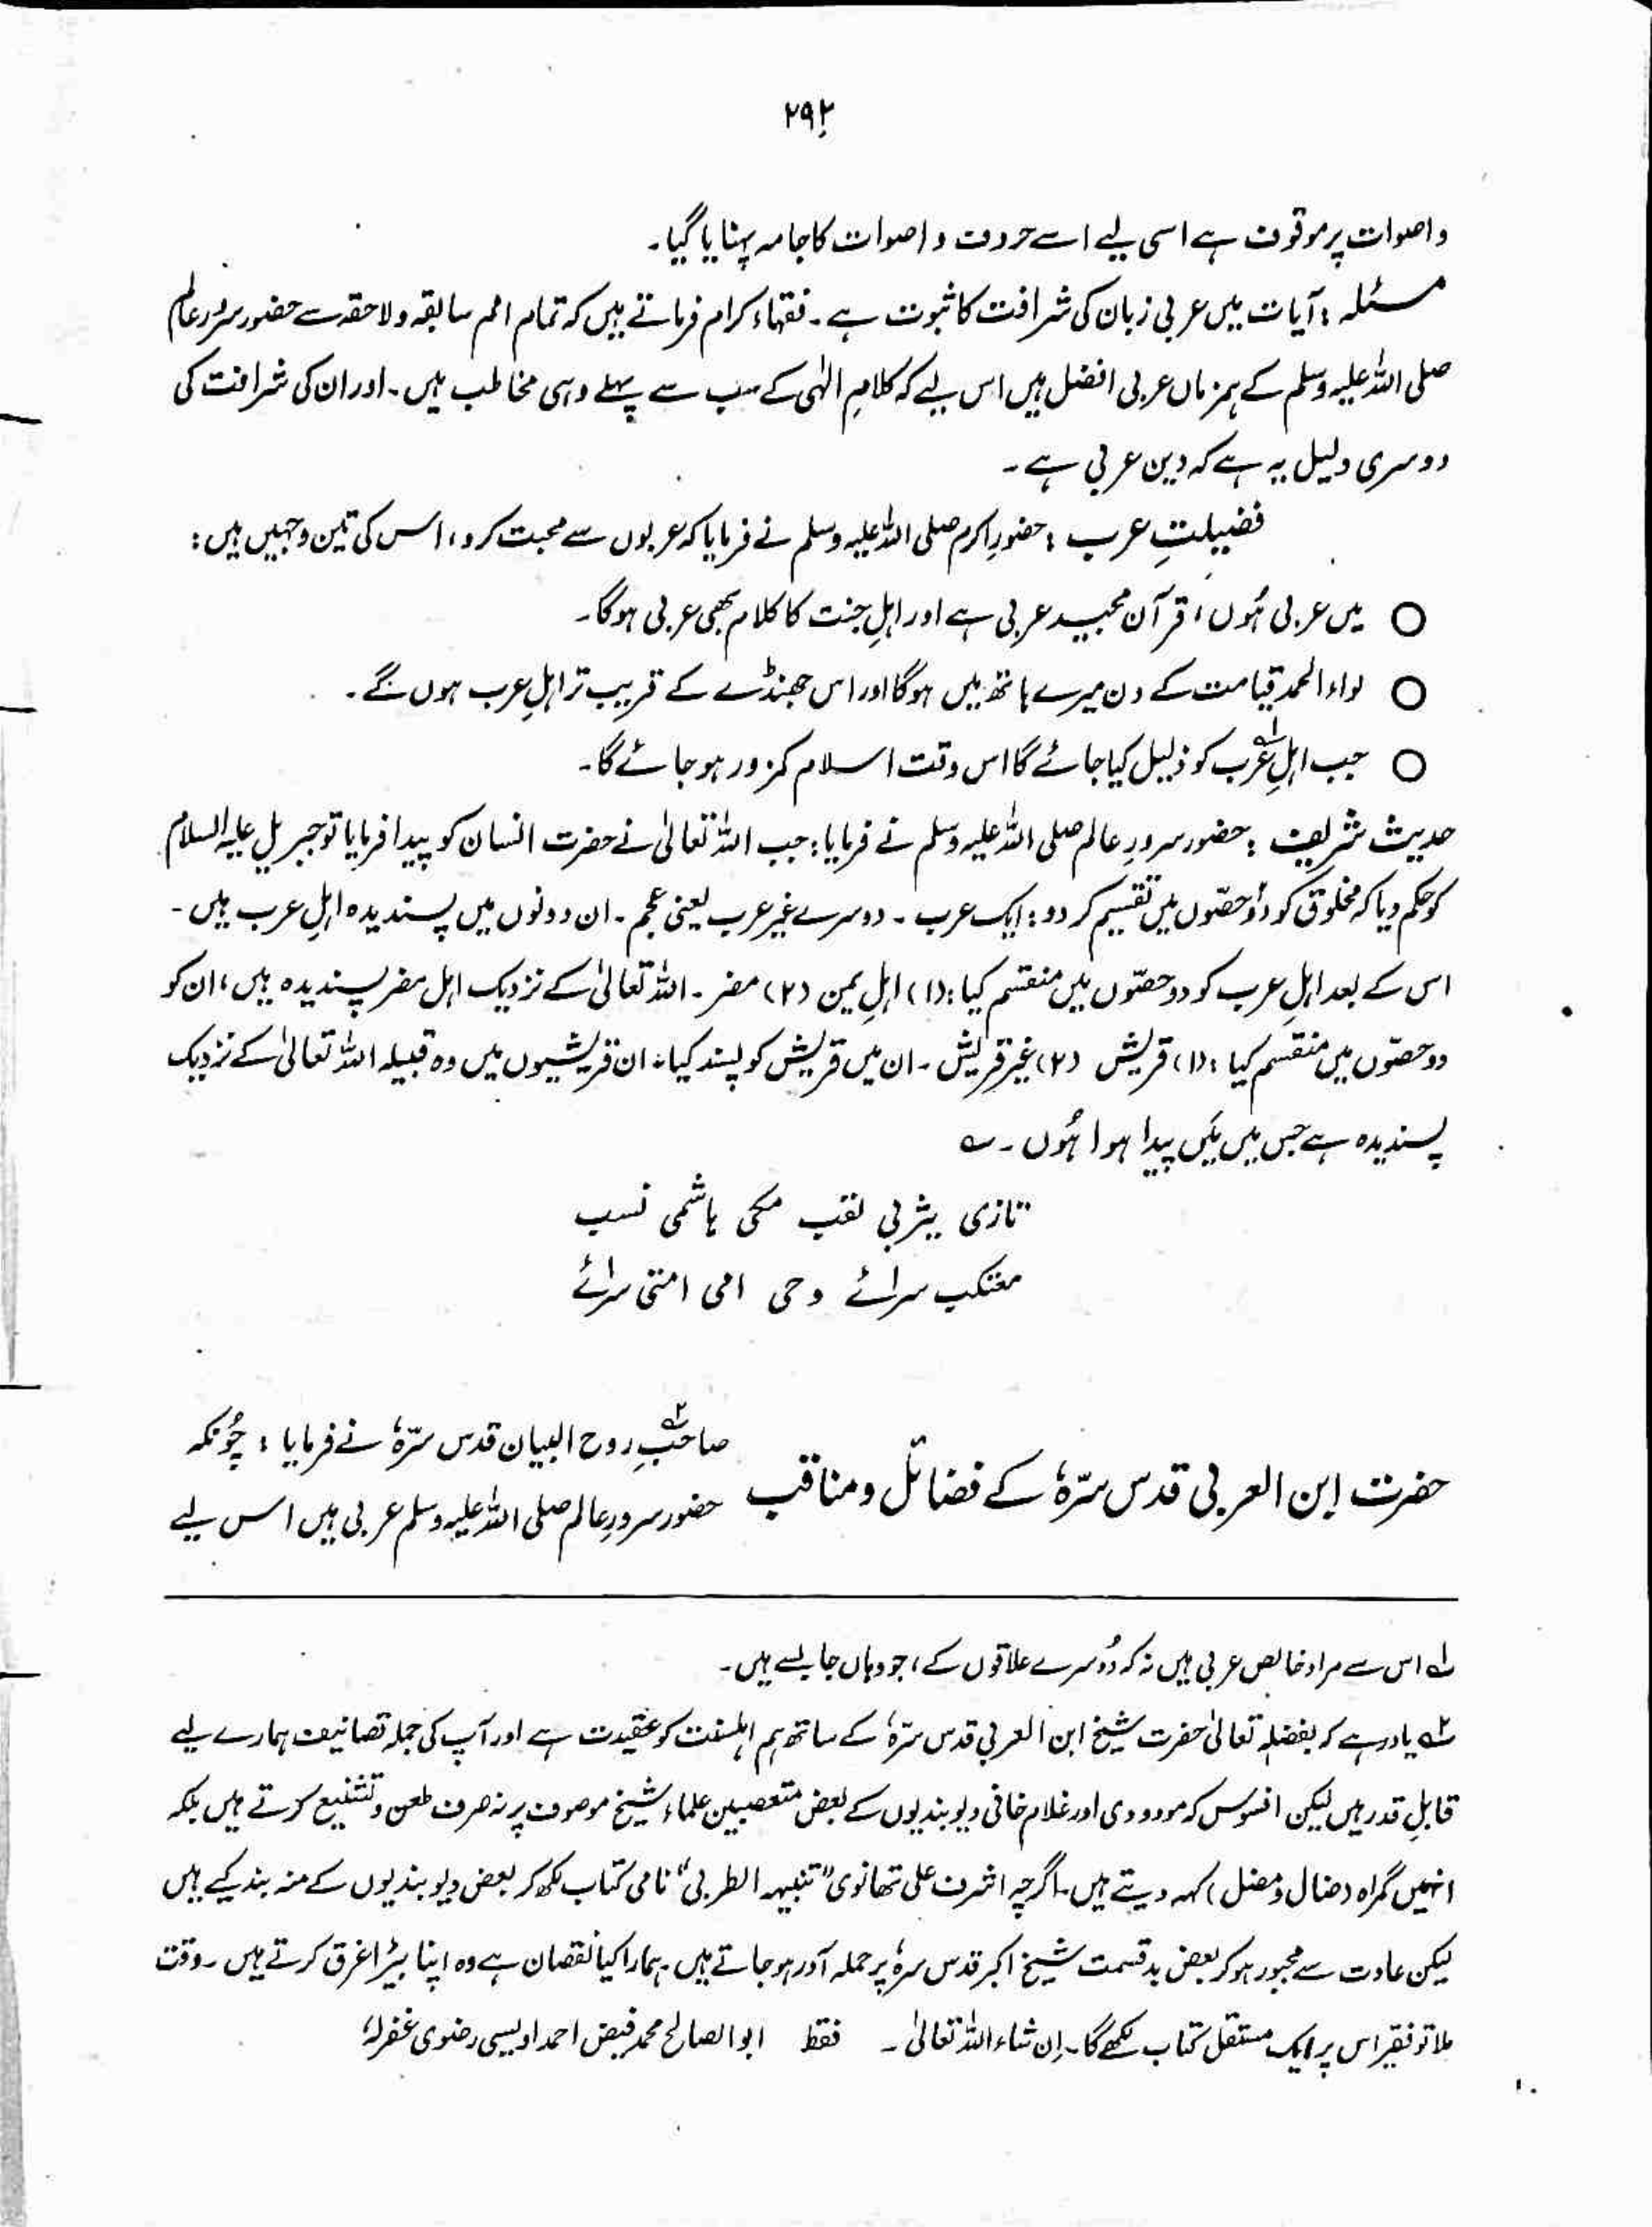 ۲۹۲
و اصوات پر موقوف ہے اسی لیے اسے حروف و اصوات کا جامہ پہنایا گیا۔
مسئلہ : آیات میں عربی زبان کی شرافت کا ثبوت ہے۔ فقہاء کرام فرماتے ہیں کہ تمام امم سابقہ و لاحقہ سے حضور سرور عالم
صلی اللہ علیہ وسلم کے ہمزماں عربی افضل ہیں اس لیے کہ کلامِ الٰہی کے سب سے پہلے وہی مخاطب ہیں۔ اور ان کی شرافت کی
دوسری دلیل یہ ہے کہ دین عربی ہے۔
فضیلتِ عرب : حضورِ اکرم صلی اللہ علیہ وسلم نے فرمایا کہ عربوں سے محبت کرو، اس کی تین وجہیں ہیں :
○ میں عربی ہُوں، قرآن مجید عربی ہے اور اہلِ جنت کا کلام بھی عربی ہوگا۔
○ لواء الحمد قیامت کے دن میرے ہاتھ میں ہوگا اور اس جھنڈے کے قریب تر اہلِ عرب ہوں گے۔
○ جب اہلِ عرب۱؎ کو ذلیل کیا جائے گا اس وقت اسلام کمزور ہو جائے گا۔
حدیث شریف : حضور سرورِ عالم صلی اللہ علیہ وسلم نے فرمایا : جب اللہ تعالیٰ نے حضرت انسان کو پیدا فرمایا تو جبریل علیہ السلام
کو حکم دیا کہ مخلوق کو دو حصّوں میں تقسیم کر دو : ایک عرب ۔ دوسرے غیر عرب یعنی عجم ۔ ان دونوں میں پسندیدہ اہلِ عرب ہیں۔
اس کے بعد اہلِ عرب کو دو حصّوں میں منقسم کیا : (۱) اہلِ یمن (۲) مضر ۔ اللہ تعالیٰ کے نزدیک اہل مضر پسندیدہ ہیں، ان کو
دو حصّوں میں منقسم کیا : (۱) قریش (۲) غیر قریش ۔ ان میں قریش کو پسند کیا، ان قریشیوں میں وہ قبیلہ اللہ تعالیٰ کے نزدیک
پسندیدہ ہے جس میں مَیں پیدا ہوا ہُوں ۔ ؎
تازی یثربی لقب مکی ہاشمی نسب
معتکب سرائے وحی امی امتی سرائے
حضرت ابن العربی قدس سرّہٗ کے فضائل و مناقب
صاحبِ۲؎ روح البیان قدس سرّہٗ نے فرمایا : چُونکہ
حضور سرورِ عالم صلی اللہ علیہ وسلم عربی ہیں اس لیے
۱؎ اس سے مراد خالص عربی ہیں نہ کہ دُوسرے علاقوں کے، جو وہاں جا بسے ہیں۔
۲؎ یاد رہے کہ بفضلہٖ تعالیٰ حضرت شیخ ابن العربی قدس سرّہٗ کے ساتھ ہم اہلسنت کو عقیدت ہے اور آپ کی جملہ تصانیف ہمارے لیے
قابلِ قدر ہیں لیکن افسوس کہ مودودی اور غلام خانی دیوبندیوں کے بعض متعصبین علماء شیخ موصوف پر نہ صرف طعن و تشنیع کرتے ہیں بلکہ
انہیں گمراہ (ضال و مضل) کہہ دیتے ہیں۔ اگرچہ اشرف علی تھانوی "تنبیہ الطربی" نامی کتاب لکھ کر بعض دیوبندیوں کے منہ بند کیے ہیں
لیکن عادت سے مجبور ہو کر بعض بدقسمت شیخ اکبر قدس سرہٗ پر حملہ آور ہو جاتے ہیں۔ ہمارا کیا نقصان ہے وہ اپنا بیڑا غرق کرتے ہیں۔ وقت
ملا تو فقیر اس پر ایک مستقل کتاب لکھے گا۔ اِن شاء اللہ تعالیٰ ۔ فقط ابوالصالح محمد فیض احمد اویسی رضوی غفرلہٗ